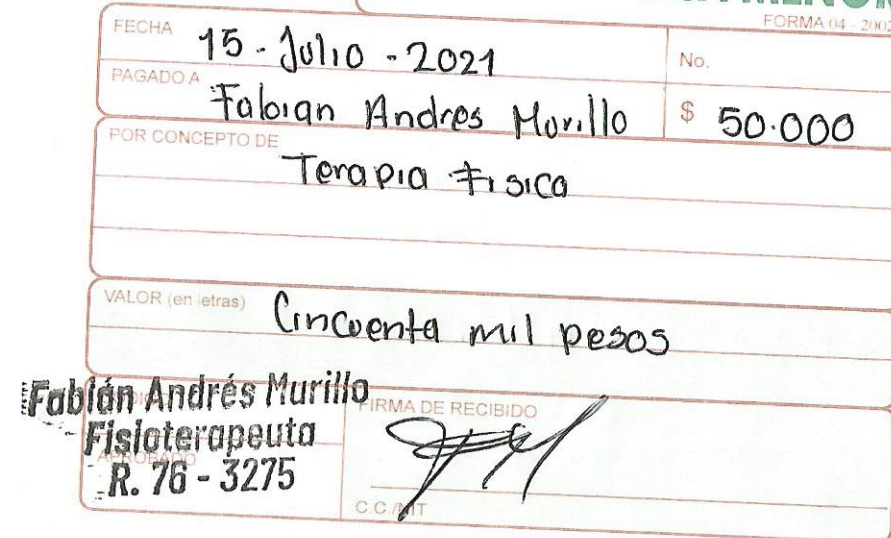 MENOR
FORMA 04 - 2002
FECHA 15 - Julio - 2021
No.
PAGADO A Fabian Andres Murillo
$ 50.000
POR CONCEPTO DE
Terapia Fisica
VALOR (en letras) Cincuenta mil pesos
Fabián Andrés Murillo
Fisioterapeuta
APROBADO
R. 76 - 3275
FIRMA DE RECIBIDO
C.C./NIT